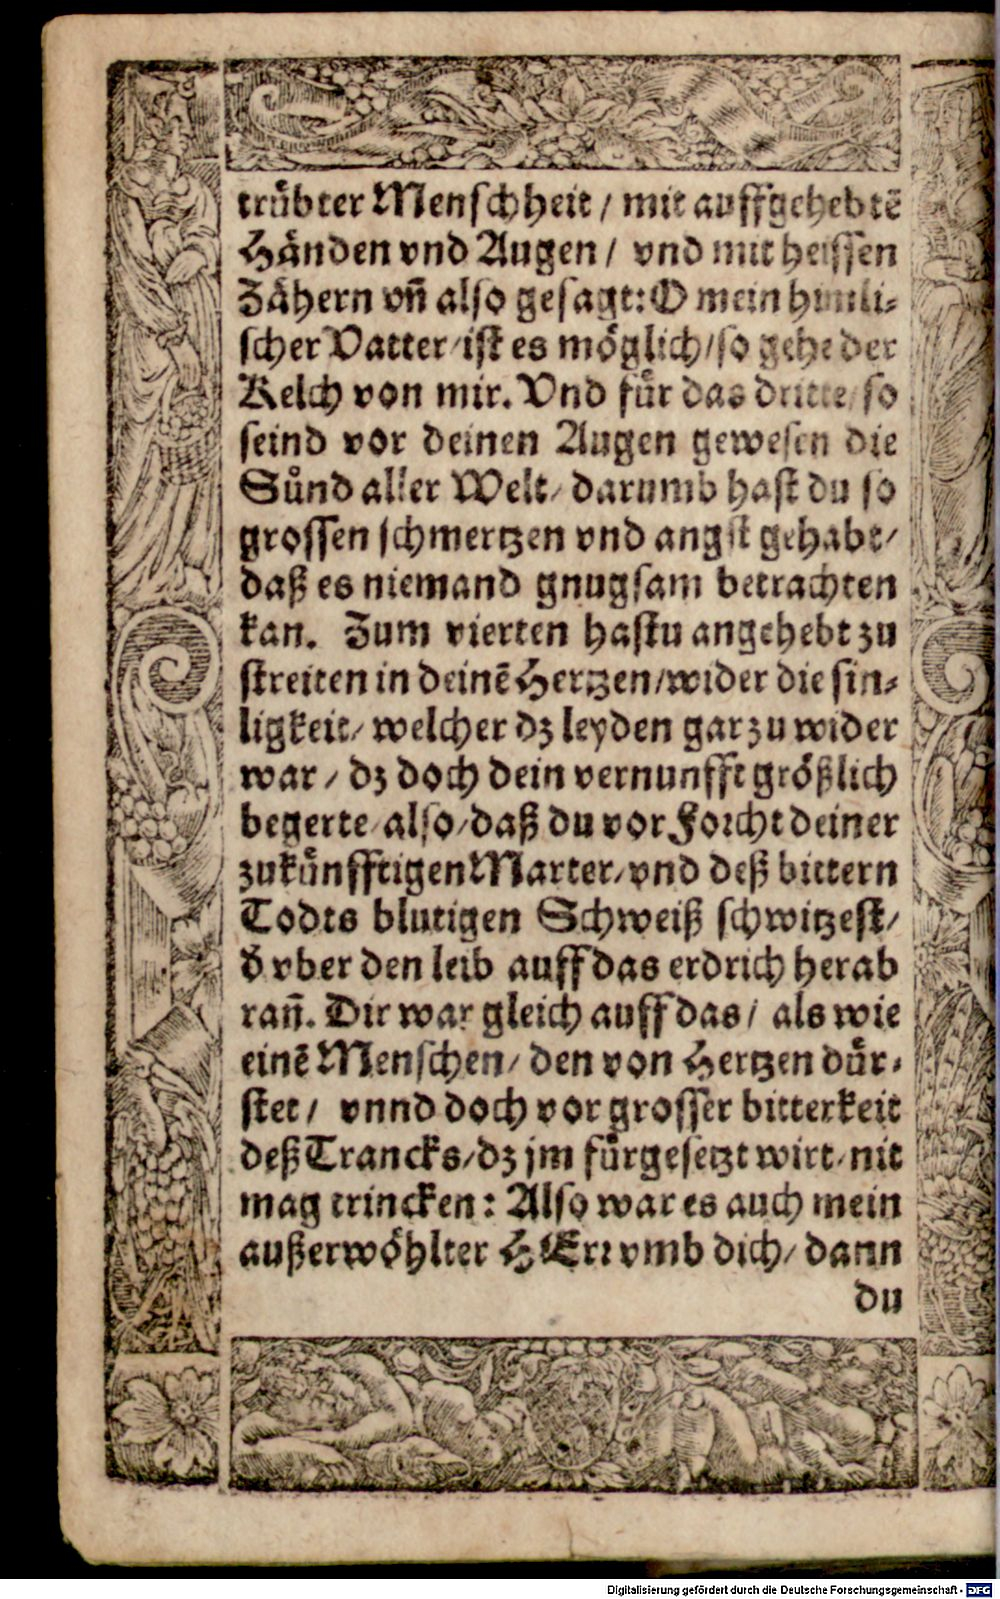 truͤbter Menschheit / mit auffgehebtē
Haͤnden vnd Augen / vnd mit heissen
Zaͤhern vñ also gesagt: O mein himli-
scher Vatter / ist es moͤglich / so gehe der
Kelch von mir. Vnd fuͤr das dritte / so
seind vor deinen Augen gewesen die
Suͤnd aller Welt / darumb hast du so
grossen schmertzen vnd angst gehabt /
daß es niemand gnugsam betrachten
kan. Zum vierten hastu angehebt zu
streiten in deinē Hertzen / wider die sin-
ligkeit / welcher dz leyden gar zu wider
war / dz doch dein vernunfft groͤßlich
begerte / also / daß du vor Forcht deiner
zukuͤnfftigen Marter / vnd deß bittern
Todts blutigen Schweiß schwitzest /
đ vber den leib auff das erdrich herab
rañ. Dir war gleich auff das / als wie
einē Menschen / den von Hertzen duͤr-
stet / vnnd doch vor grosser bitterkeit
deß Trancks / dz jm fuͤrgesetzt wirt / nit
mag trincken : Also war es auch mein
außerwoͤhlter HErr vmb dich / dann
du
Digitalisierung gefördert durch die Deutsche Forschungsgemeinschaft - DFG